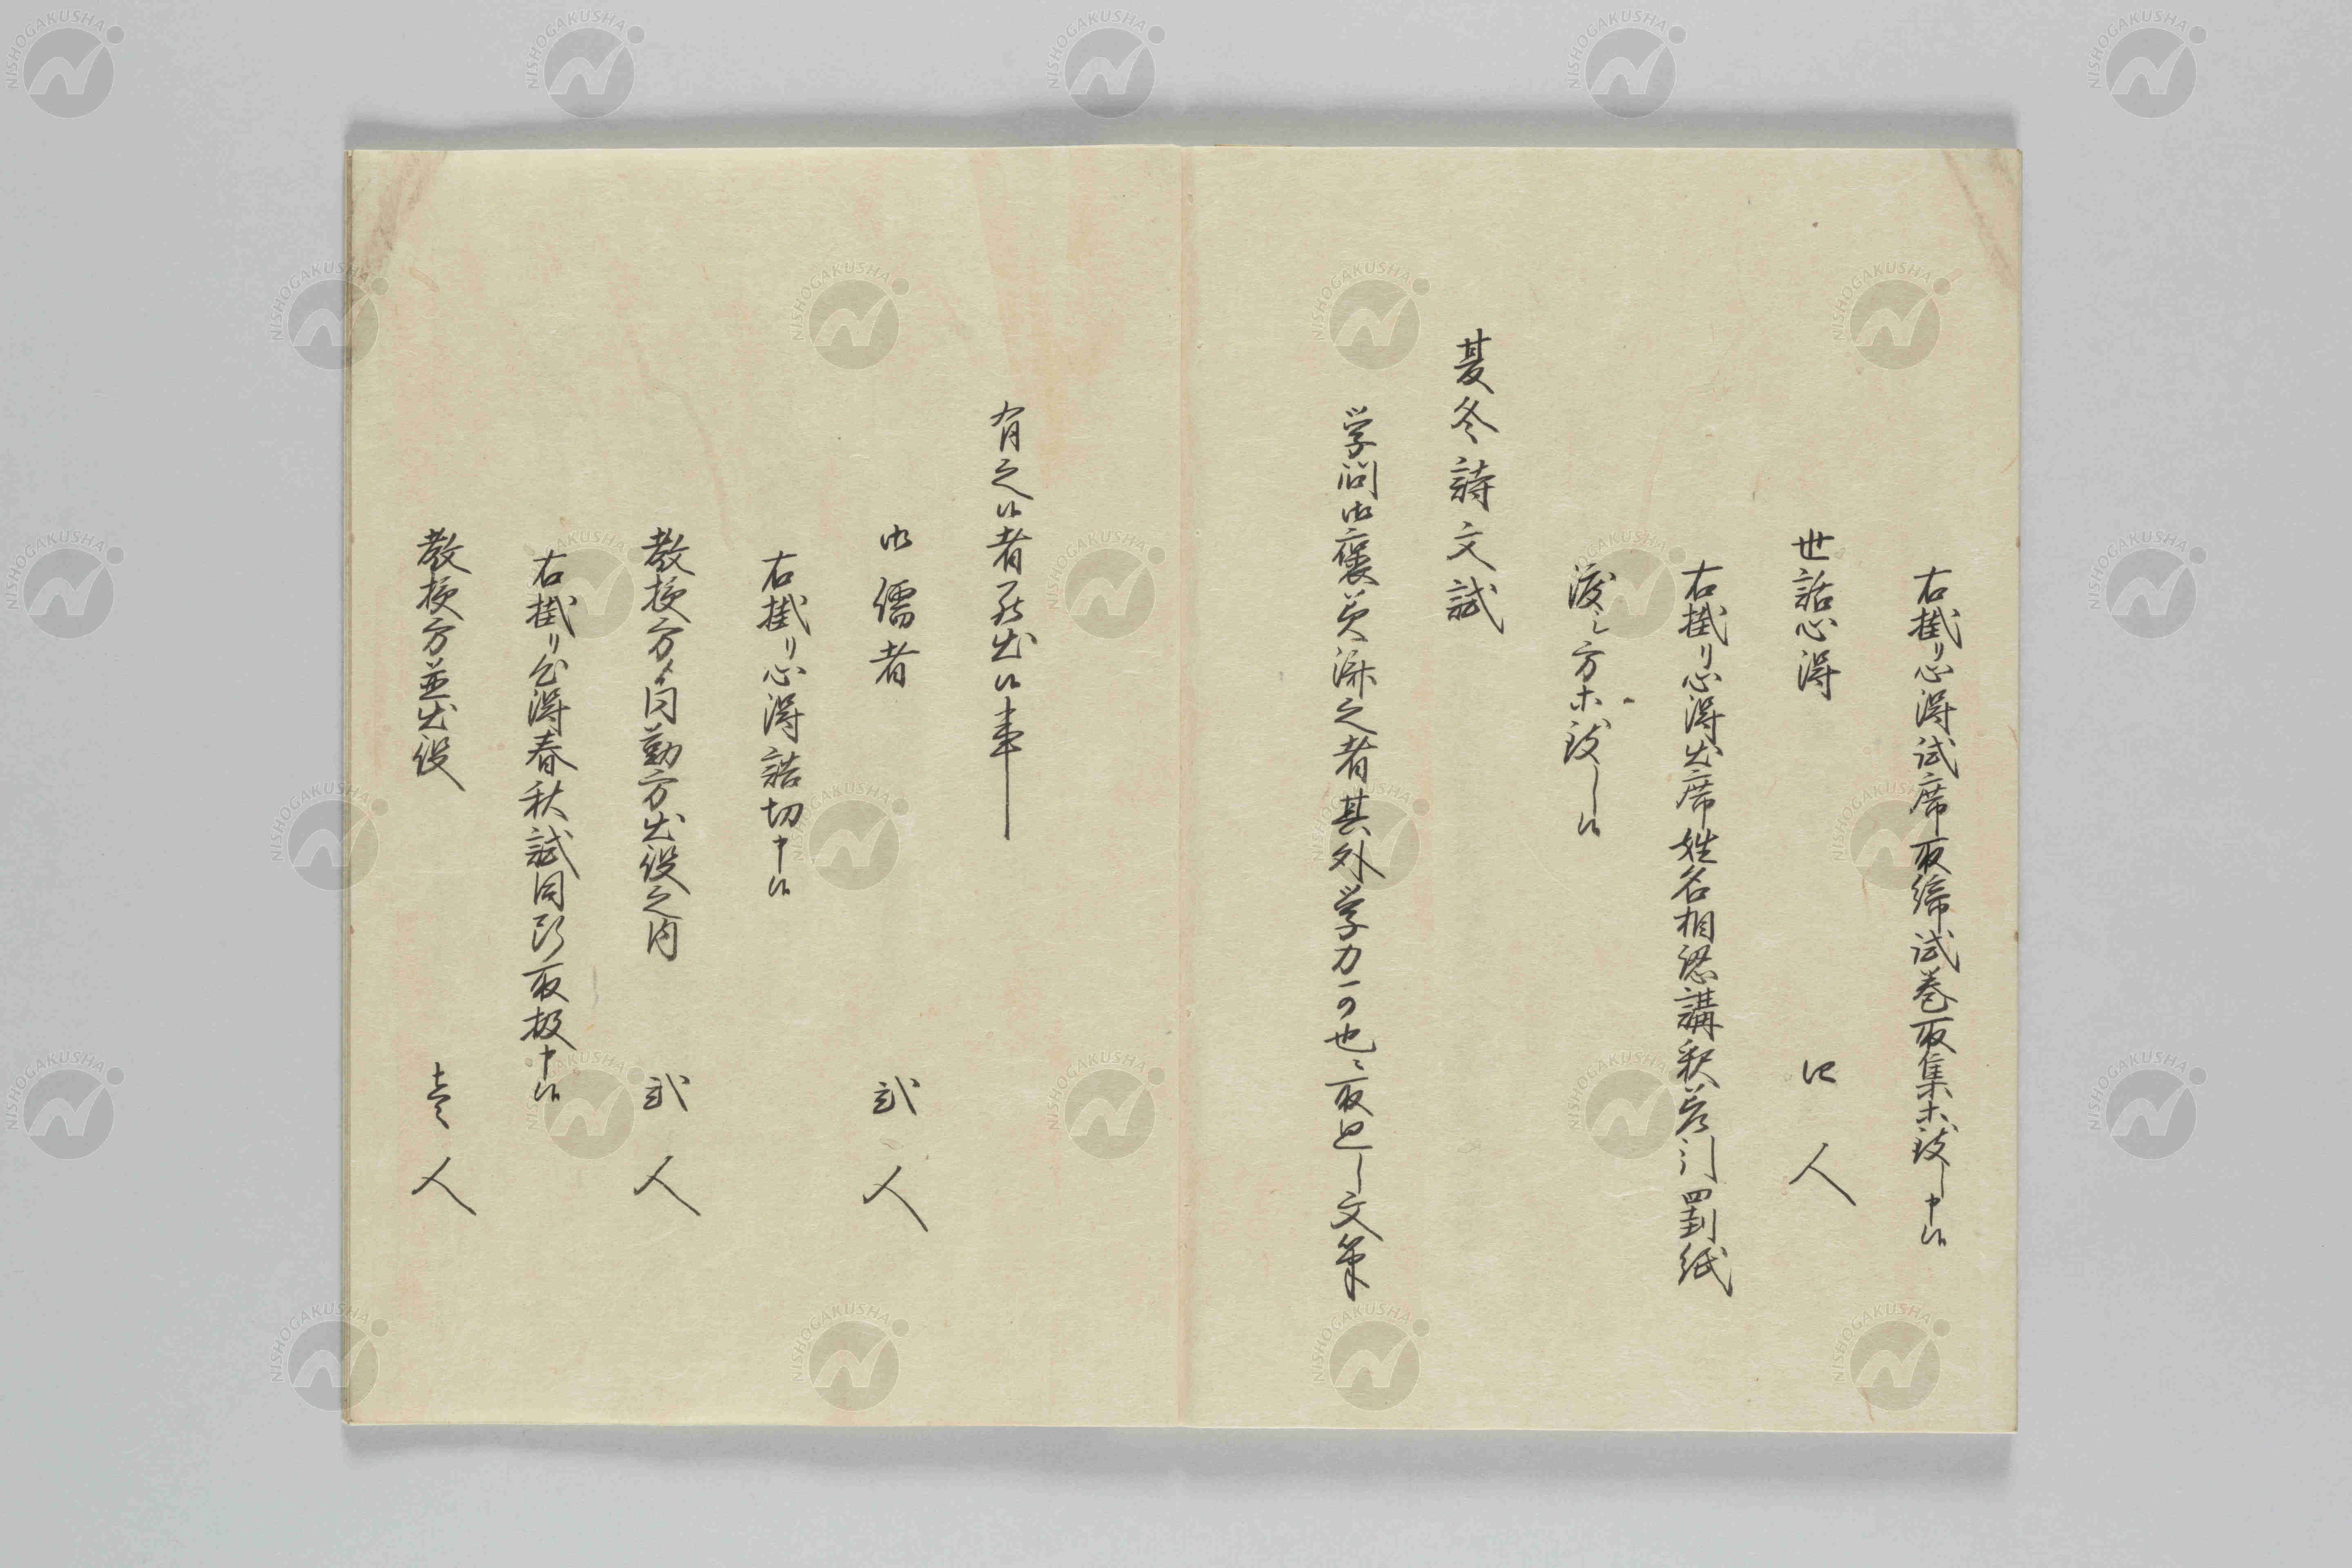 右掛り心得試席取締試巻取集等致し申候
世話心得 四人
右掛り心得出席姓名相認講釈差引罰紙
渡し方等致し候
夏冬詩文試
学問御褒美済之者其外学力可也ニ取直し文筆
有之候者罷出候事
御儒者 弐人
右掛り心得詰切申候
教授方ゟ同勤方出役之内 弐人
右掛り心得春秋試同断取扱申候
教授方並出役 壱人
NISHOGAKUSHA